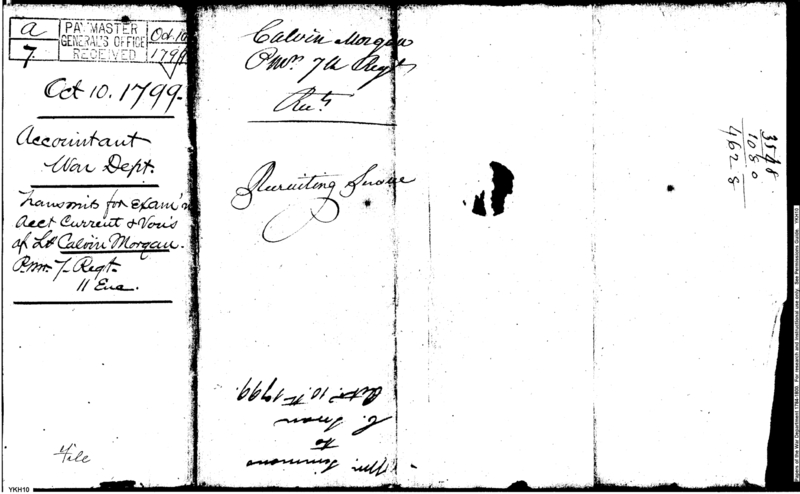 a
7.
PAYMASTER
GENERAL'S OFFICE
RECEIVED
Oct. 10
1799
Oct 10. 1799.
Accountant
War Dept.
Transmits for Exam'n
Acct Current & Vou's
of Lt Calvin Morgan.
P.M. 7 Regt.
11 Enc.
File
Calvin Morgan
7th Regt
Recruiting
Wm. Simmons
to
C. Swan
Oct. 10th 1799.
3548
1080
4628
YKH10
YKH10
For research and instructional use only. See Permissions Guide
Papers of the War Department 1784-180